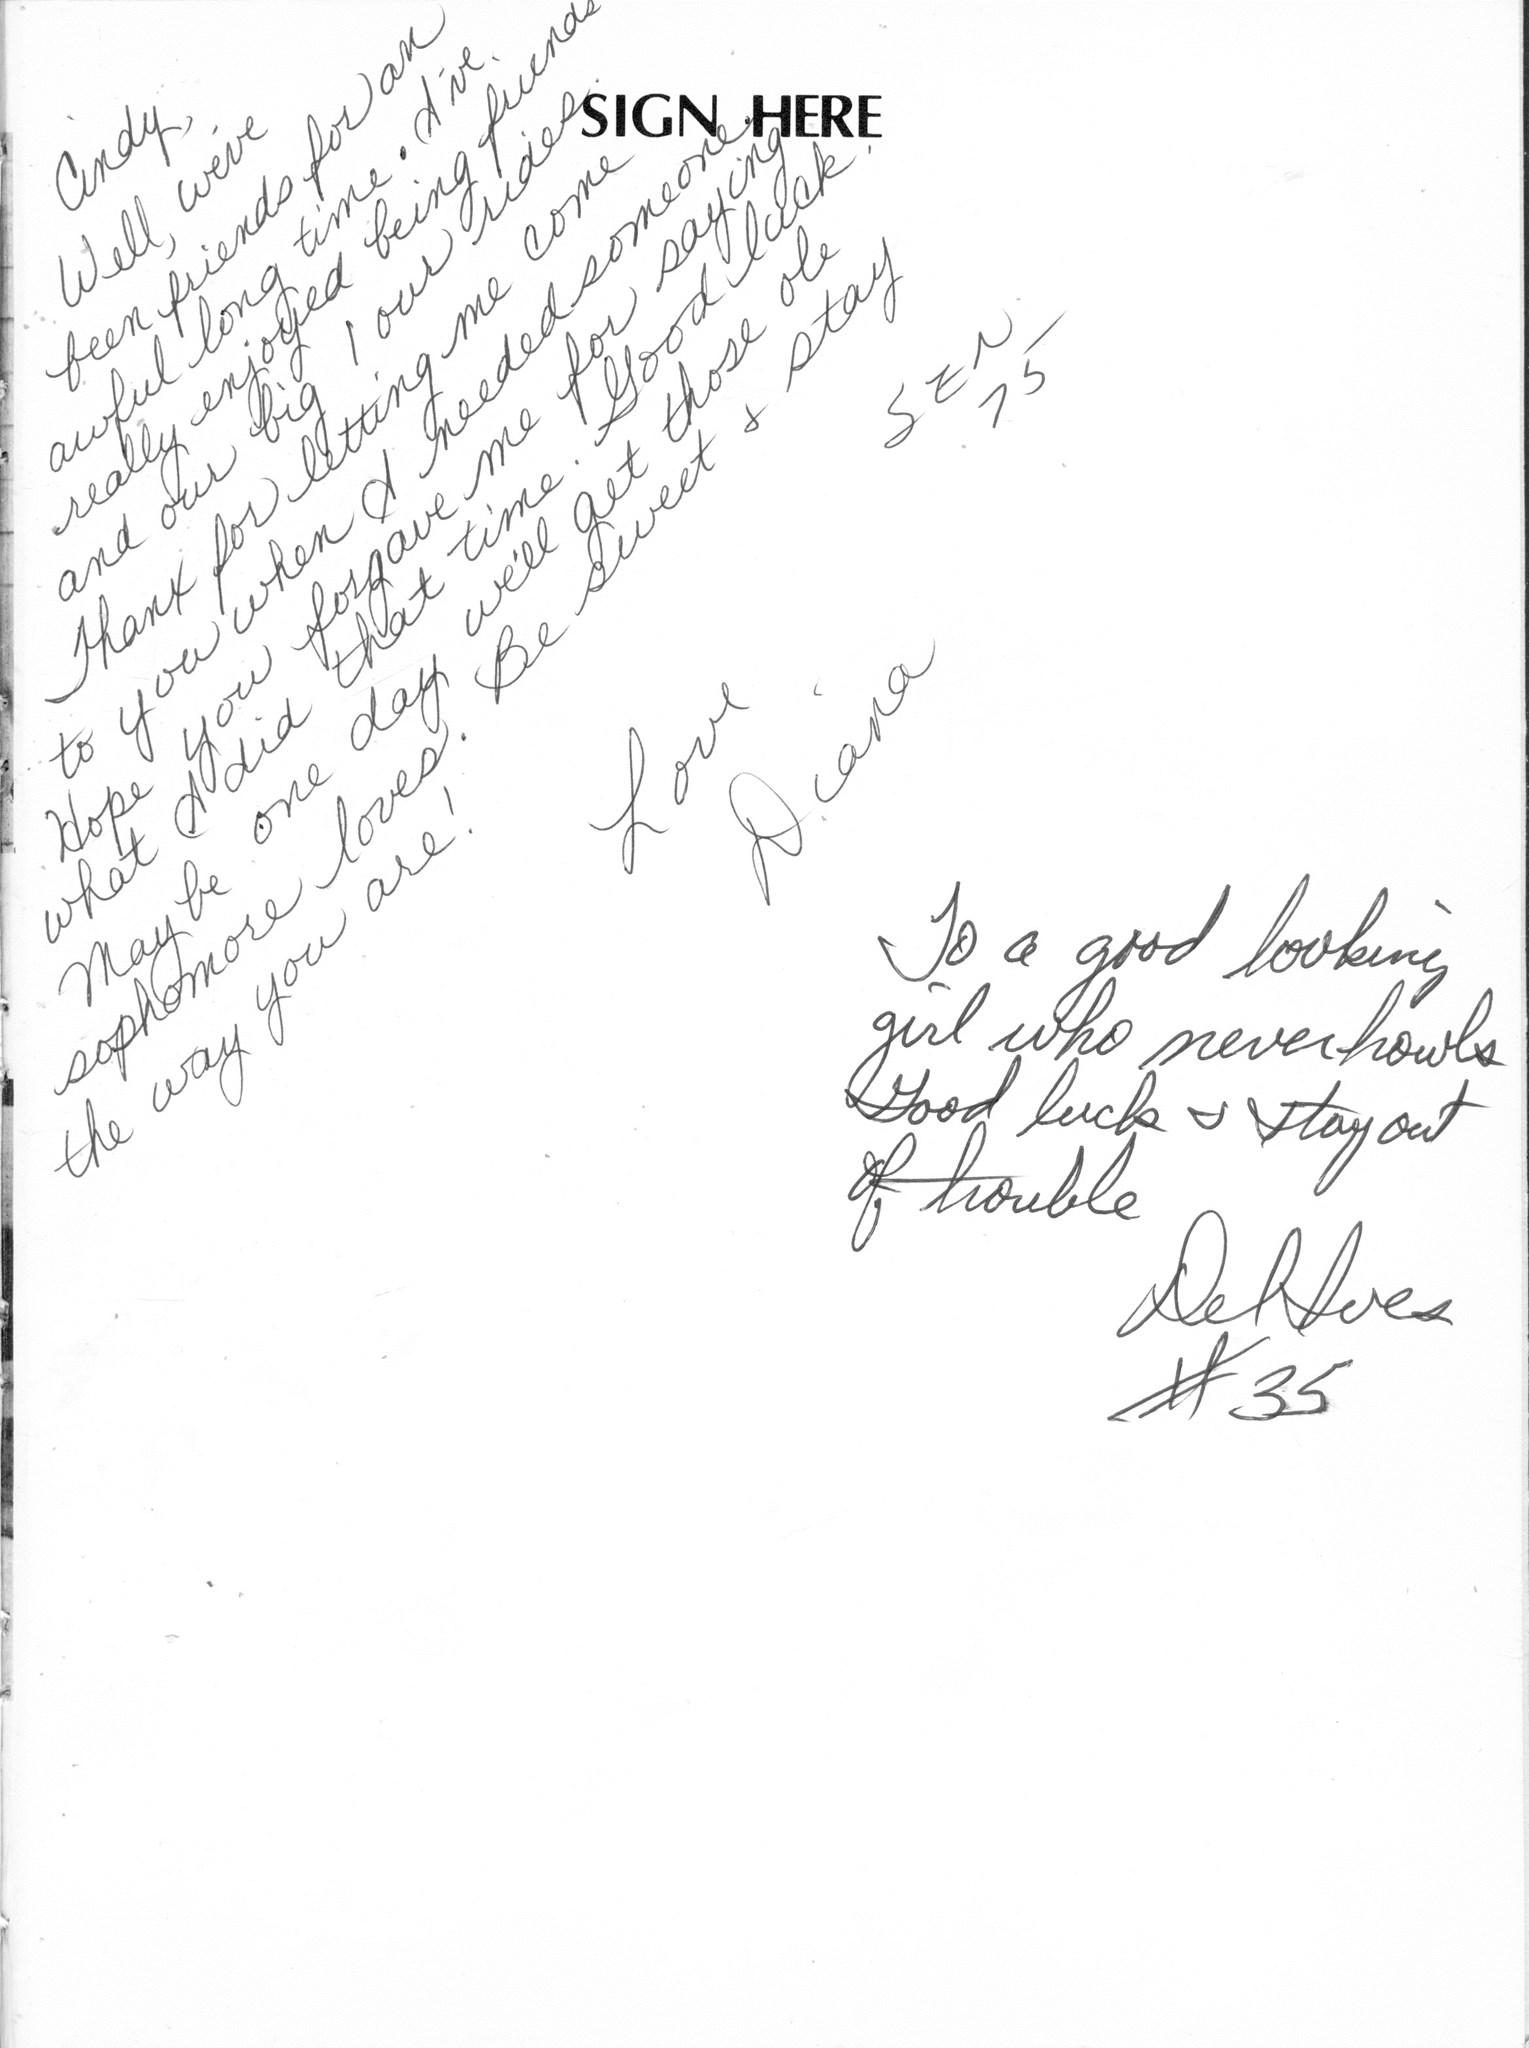 SIGN HERE
Cindy,
Well, we've
been friends for an
awful long time. I've
really enjoyed being friends
and our big ! our rides.
Thanx for letting me come
to you when I needed someone.
Hope you forgave me for saying
what I did that time. Good luck!
Maybe one day we'll get those ole
sophomore loves. Be sweet & stay
the way you are!
Love
Diana
SEN
75
To a good looking
girl who never howls
Good luck & stay out
of trouble
Del Ives
#35